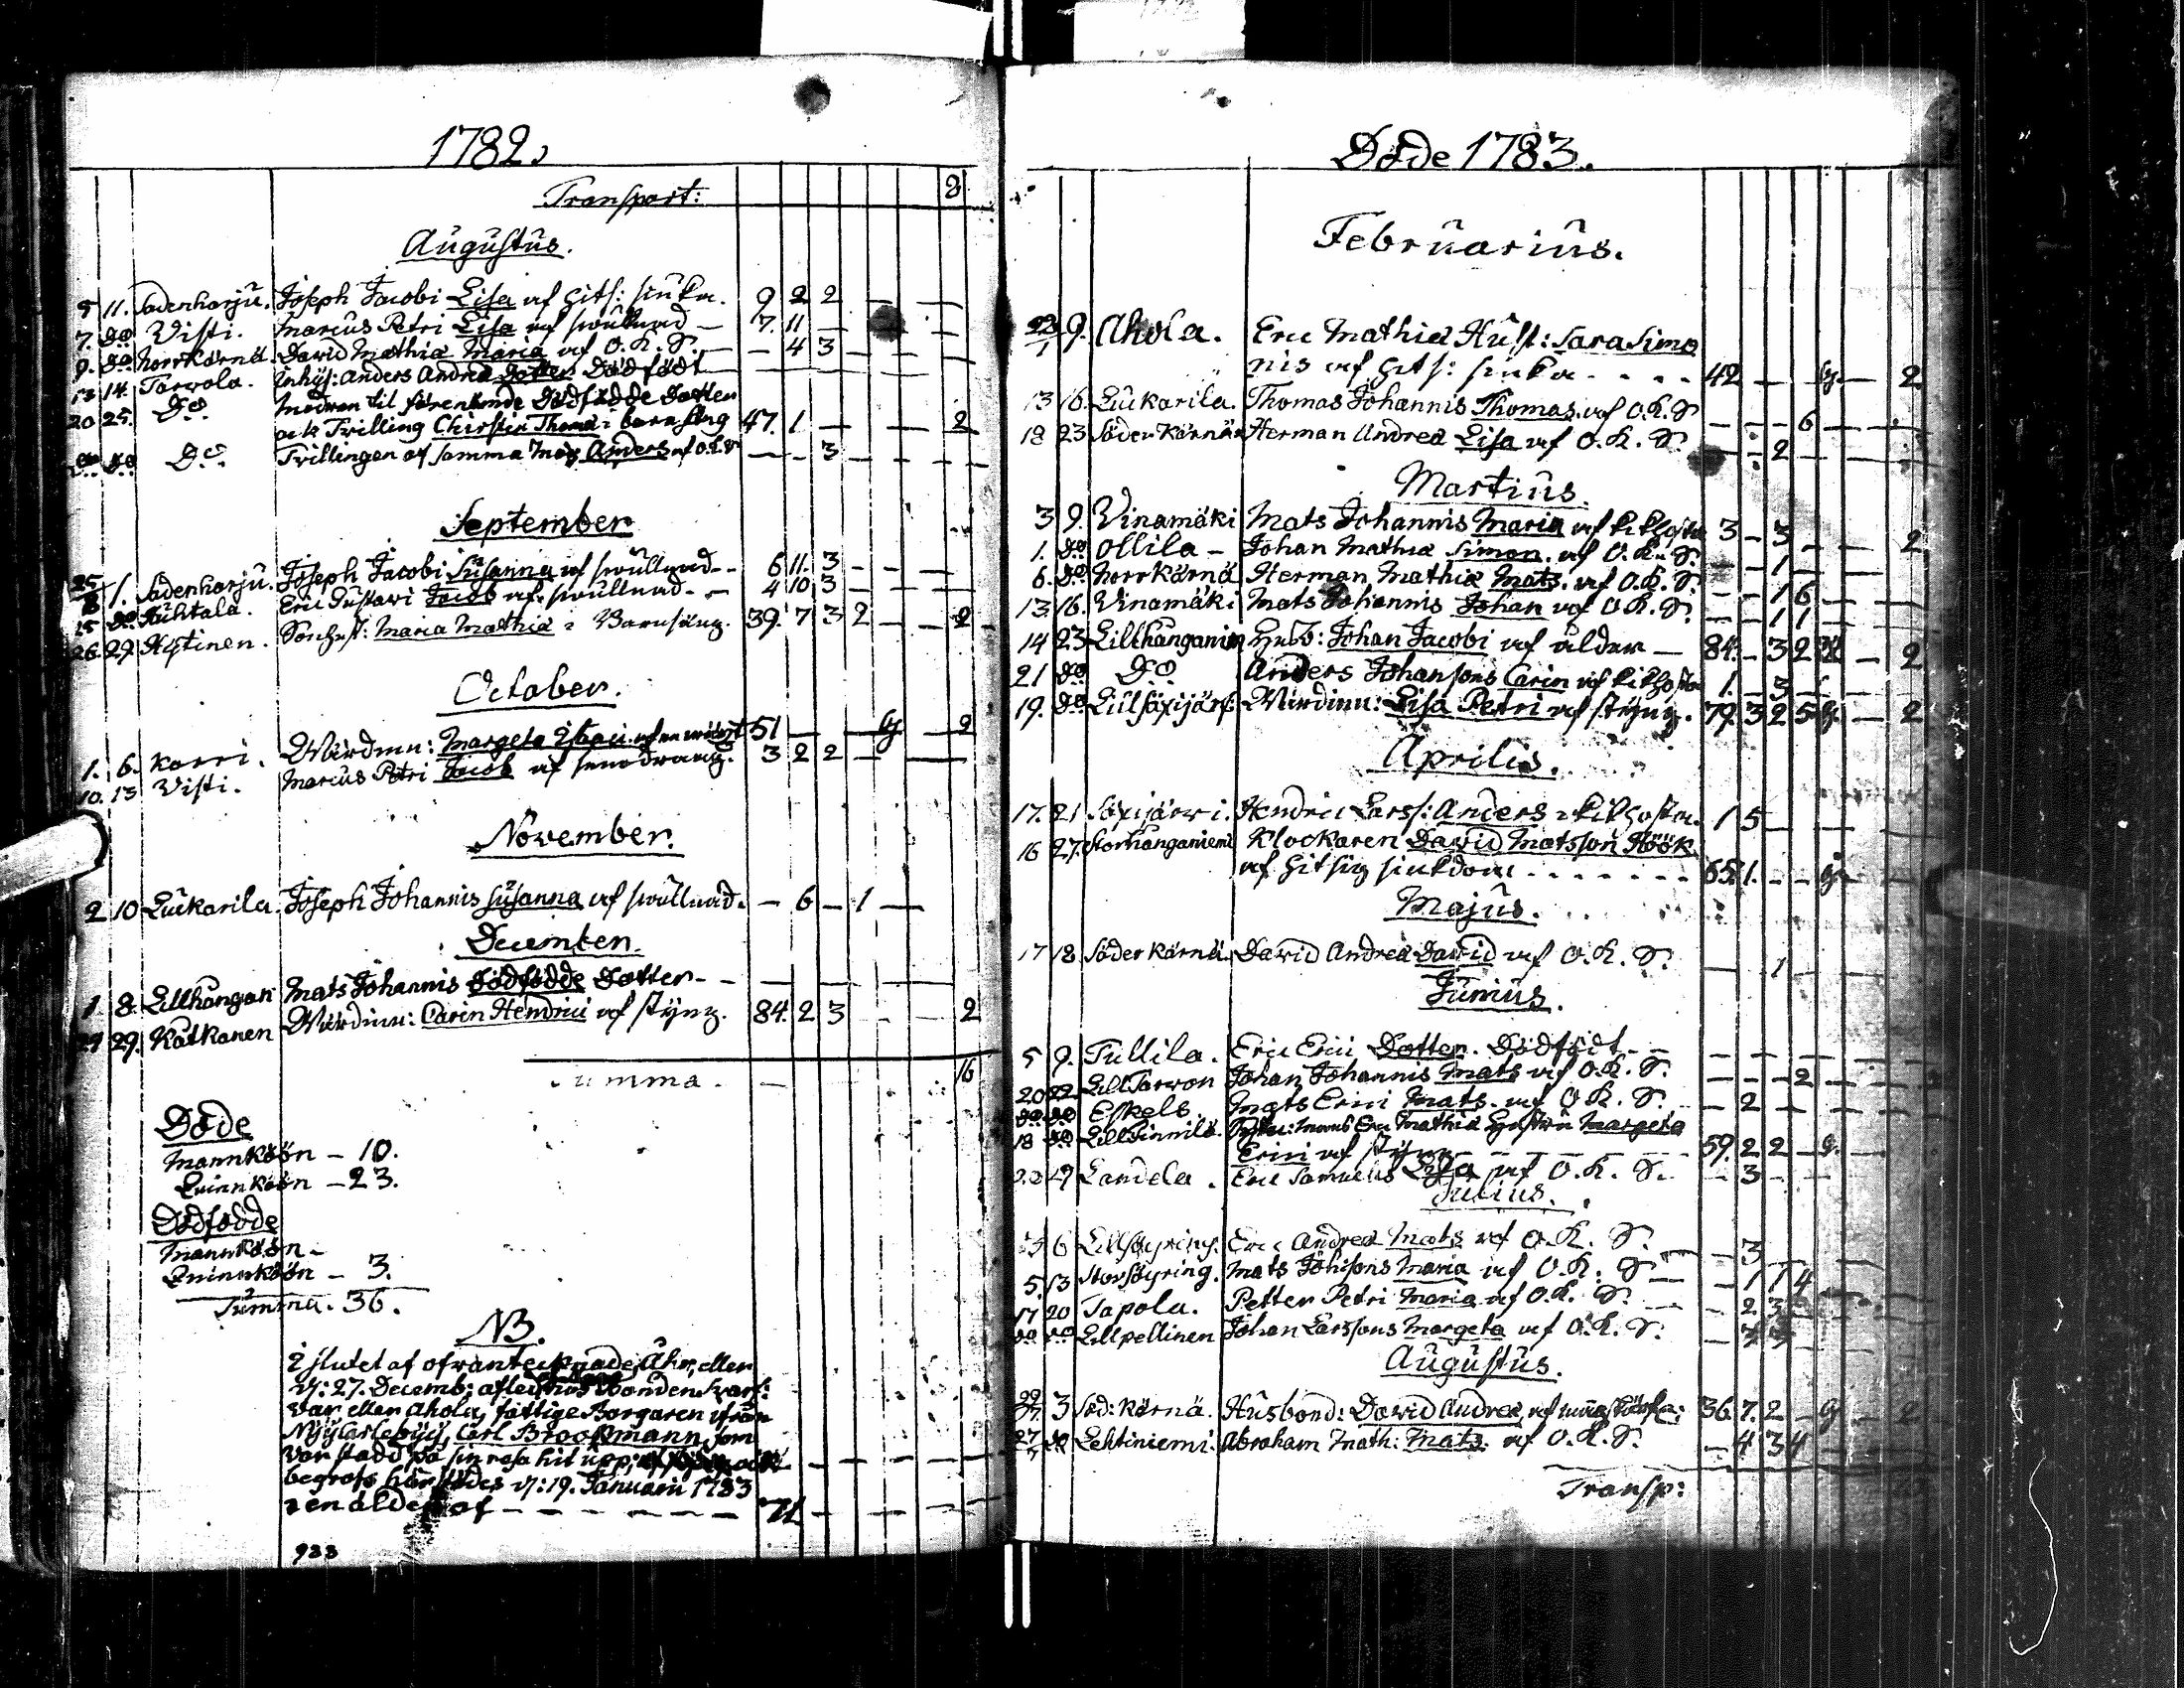 1782.
Transport: 8
Augustus.
5 11. Sadenharju. Joseph Jacobi Lisa af hits: siuka. 9 2 2
7. do Visti. Marcus Petri Lisa af swullnad 7. 11
9. do Norrkärnä David Mathiæ Maria af O. K. S. 4 3
13 14. Tarwola. Inhys: Anders Andreæ Dotter Dödfödt
20 25. Do Modren til förenämnde Dödfödde Dotter
ock Tvilling Chirstin Thomæ i barnsäng 47. 1 2
do do Do. Tvillingen af samma Mor Anders af O.K.S 3
September
25/8 1. Sadenharju. Joseph Jacobi Susanna af swullnad 6 11. 3
15 do Juhtala. Eric Gustavi Jacob af swullnad 4 10 3
26. 29. Hytinen. Sonhust: Maria Mathiæ i Barnsäng. 39. 7 3 2 2
October.
1. 6. Karri. Wärdinn: Margeta 51 g 2
10. 13 Visti. Marcus Petri Jacob af 3 2 2
November.
2 10 Luckarila. Joseph Johannis Susanna af swullnad. 6 1
December.
1 8. Lillhångan Mats Johannis Dödfödde Dotter
29 29. Kátkanen Wärdinn: Carin Hendrici af styng. 84. 2 3 2
Summa. 16
Döde
Mannköön - 10.
Qvinnköön - 23.
Dödfödde
Mannköön -
Qvinnköön - 3.
Summa. 36.
NB.
I slutet af ofvantecknade Åhr, eller
d: 27. Decemb: afled hos Bonden
Var eller Ahola, fattige Borgaren ifrån
Nycarleby, Carl Brookmann, som
var stadd på sin resa hit upp,
begrofs härstädes d: 19. Januarii 1783
i en ålder af 71
933
Döde 1783.
Februarius.
22/1 9. Ahola. Eric Mathiæ Hust: Sara Simo
nis af hits: siuka 42 g. 2
13 16. Luckarila. Thomas Johannis Thomas af O. K. S 6
18 23 Söderkärnä Herman Andreæ Lisa af O. K. S. 2
Martius.
3 9. Vinamäki Mats Johannis Maria af kikhosta 3 3 2
1. do Ollila - Johan Mathiæ Simon. af O. K. S. 1
6. do Norrkärnä Herman Mathiæ Mats. af O. K. S. 1 6
13. 16. Vinamäki Mats Johannis Johan af O. K. S. 1 1
14 23 Lillhånganien Johan Jacobi af ålder 84. 3 2 2
21 do Do Anders Johansons Carin af kikhosta 1. 3
19. do Lillsäxijärf: Wärdinn: Lisa Petri af styng. 79. 3 2 5 g. 2
Aprilis.
17. 21 Säxijärvi. Hendric Larss: Anders i kikhosta. 1 5
16 27. Storhånganiemi Klockaren David Matsson Höök
af hitsig siukdom 65. 1. g.
Majus.
17 18 Söderkärnä. David Andreæ David af O. K. S. 1
Junius.
5 9. Tullila. Eric Erici Dotter. Dödfödt
20 22 Lill Tarvon Johan Johannis Mats af O. K. S. 2
do do Eskels Mats Erici Mats. af O. K. S. 2
18 do Lill Finnilä. Eric Mathiæ Hustru Margeta
Erici af styng 59. 2 2 g.
29 Landela. Eric Samuelis Lisa af O. K. S. 3
Julius.
3 6 Lillsäyring. Eric Andreæ Mats af O. K. S. 3
5. 13 Storsäyring. Mats Johisons Maria af O. K. S 1 1 4
17 20 Tapola. Petter Petri Maria af O. K. S. 2 3
do do Lillpellinen Johan Larssons Margeta af O. K. S.
Augustus.
3 Söd: Kärnä. Husbond: David Andreæ, af 36. 7. 2 g
27/7 do Lehtiniemi. Abraham Math: Mats. af O. K. S. 4 3 4
Transp: